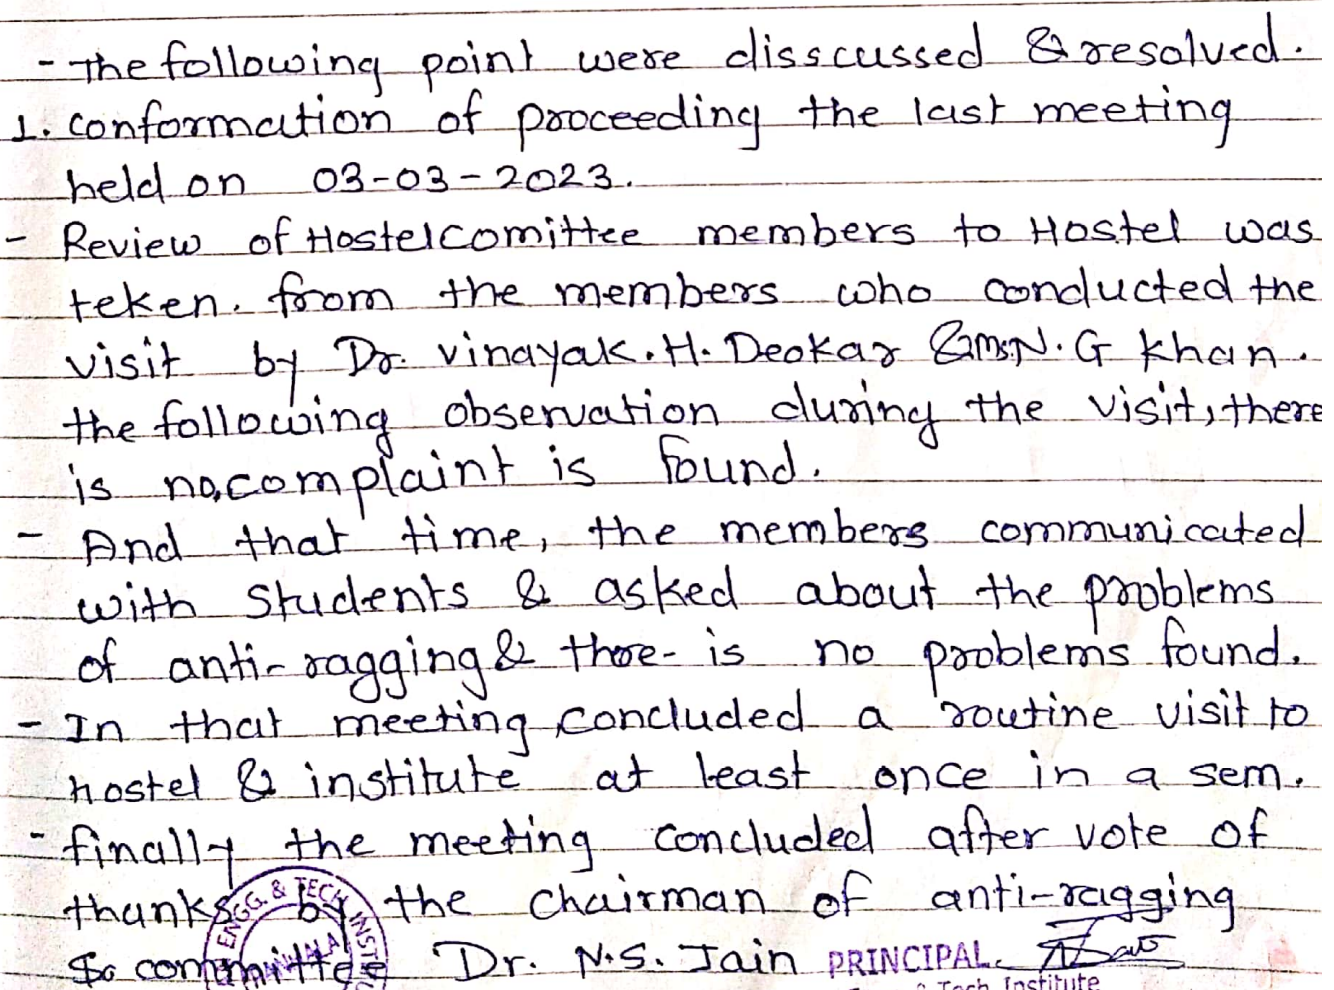 - The following point were disscussed & resolved.
1. Conformation of proceeding the last meeting
held on 03-03-2023.
- Review of Hostel Comittee members to Hostel was
teken. from the members who conducted the
visit by Dr. Vinayak. H. Deokar & Ms. N. G Khan.
the following observation during the visit, there
is no, complaint is found.
- And that time, the members communicated
with students & asked about the problems
of anti-ragging & there- is no problems found.
- In that meeting concluded a routine visit to
hostel & institute at least once in a sem.
- finally the meeting concluded after vote of
thanks by the chairman of anti-ragging
committee Dr. N.S. Jain PRINCIPAL
ENGG. & TECH INSTI
Tech Institute